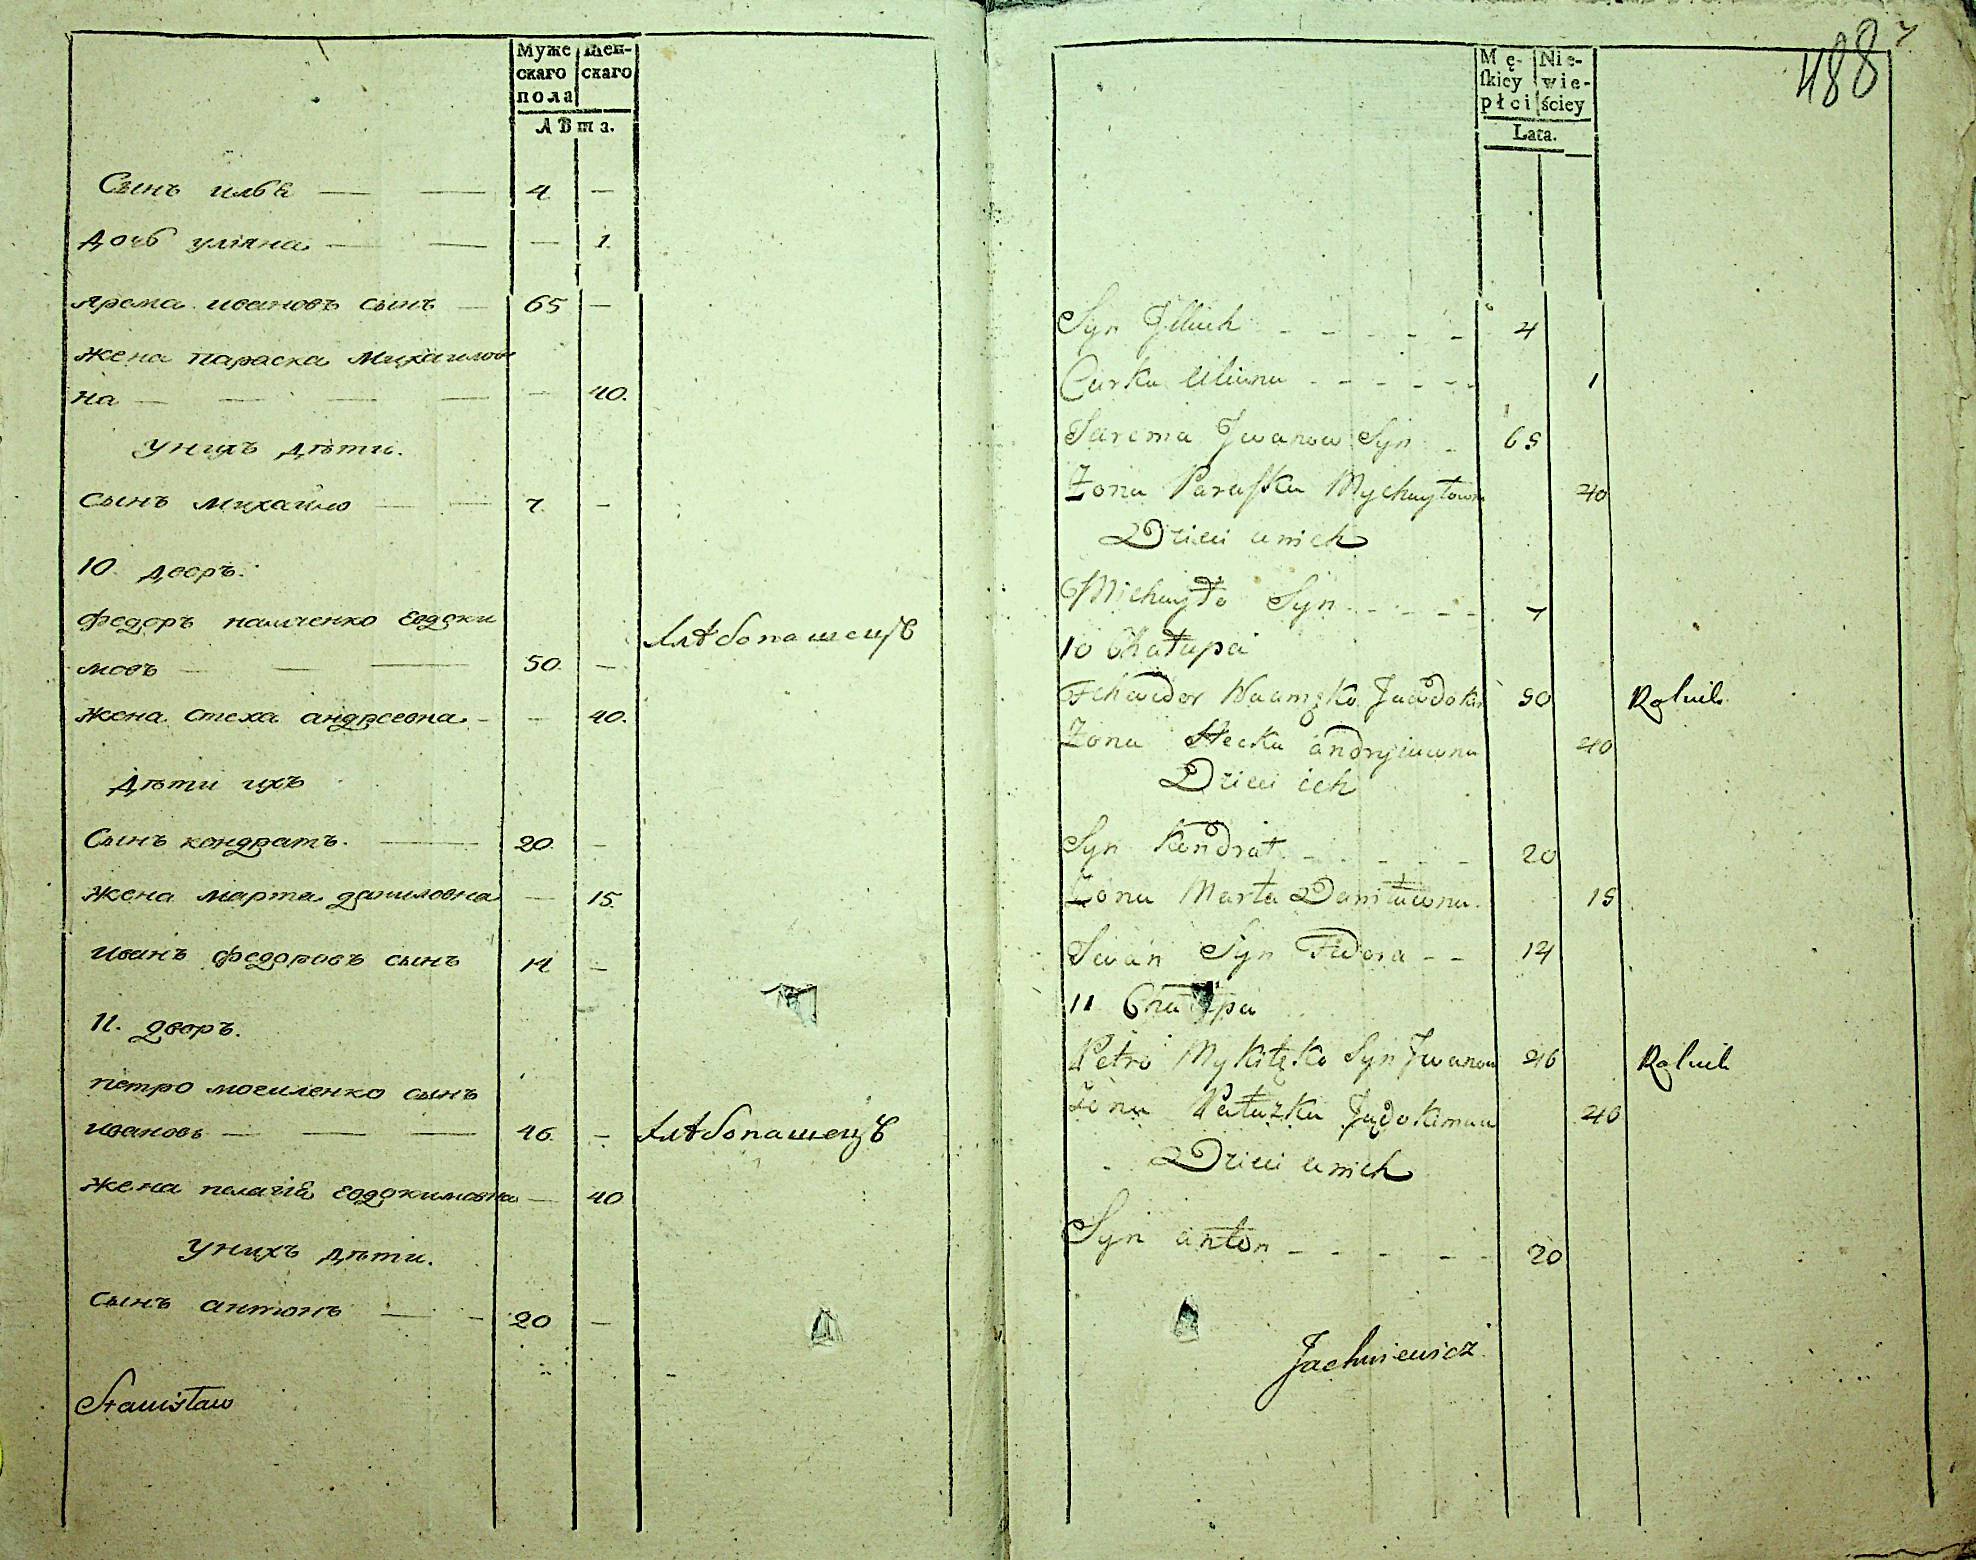 Муже Жен-
скаго скаго
пола
ЛѢта.
Сынъ илья 4 —
дочь уліяна — 1.
ярема ивановъ сынъ 65 —
жена параска михаилов
на — 40.
у нихъ дѣти.
сынъ михаило 7. —
10. дворъ.
федоръ намченко евдоки
мовъ 50. — хлѣбопашецъ
жена стеха андреевна — 40.
дѣти ихъ
Сынъ кондратъ. 20. —
жена марта даниловна — 15.
иванъ федоровъ сынъ 14 —
11. дворъ.
петро могиленко сынъ
ивановъ 46. — хлѣбопашецъ
жена пелагія евдокимовна — 40
у нихъ дѣти.
сынъ антонъ 20 —
Stanisław
488
7
Mę- Nie-
ſkiey wie-
płci ściey
Lata.
Syn Jlliuch 4
Curka Uliana 1
Jarema Jwanow Syn 65
Żona Paraſka Mychayłowna 40
Dzieci u nich
Michayło Syn 7
10 Chałupa
Fchwedor Naamzko Jawdoki 50 Rolnik
Żona Stecka andryiowna 40
Dzieci ich
Syn Kondrat 20
Żona Marta Daniłowna 15
Jwan Syn Fedora 14
11 Chałupa
Petro Mykitęko Syn Jwanow 46 Rolnik
Żona Pałażka Jwdokimna 40
Dzieci u nich
Syn anton 20
Jachniewicz